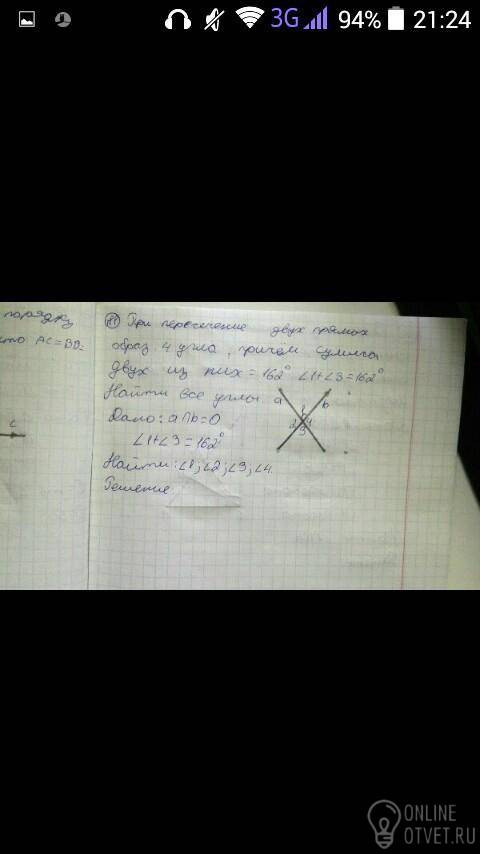 3G 94% 21:24
порядку
что AC=BD=
L
11 При пересечение двух прямых
образ. 4 угла, причём сумма
двух из них = 162° ∠1+∠3=162°
Найти все углы.
a b
1
2 4
3
Дано: a∩b=O
∠1+∠3=162°
Найти: ∠1; ∠2; ∠3; ∠4.
Решение
ONLINE
OTVET.RU